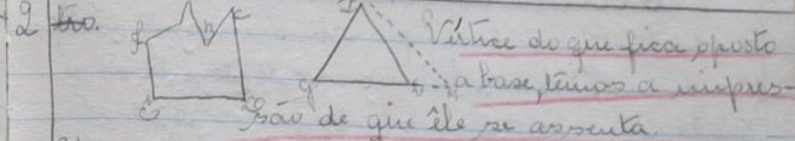 2
Vértice do que fica oposto
a base, temos a impres-
são de que êle se assenta.